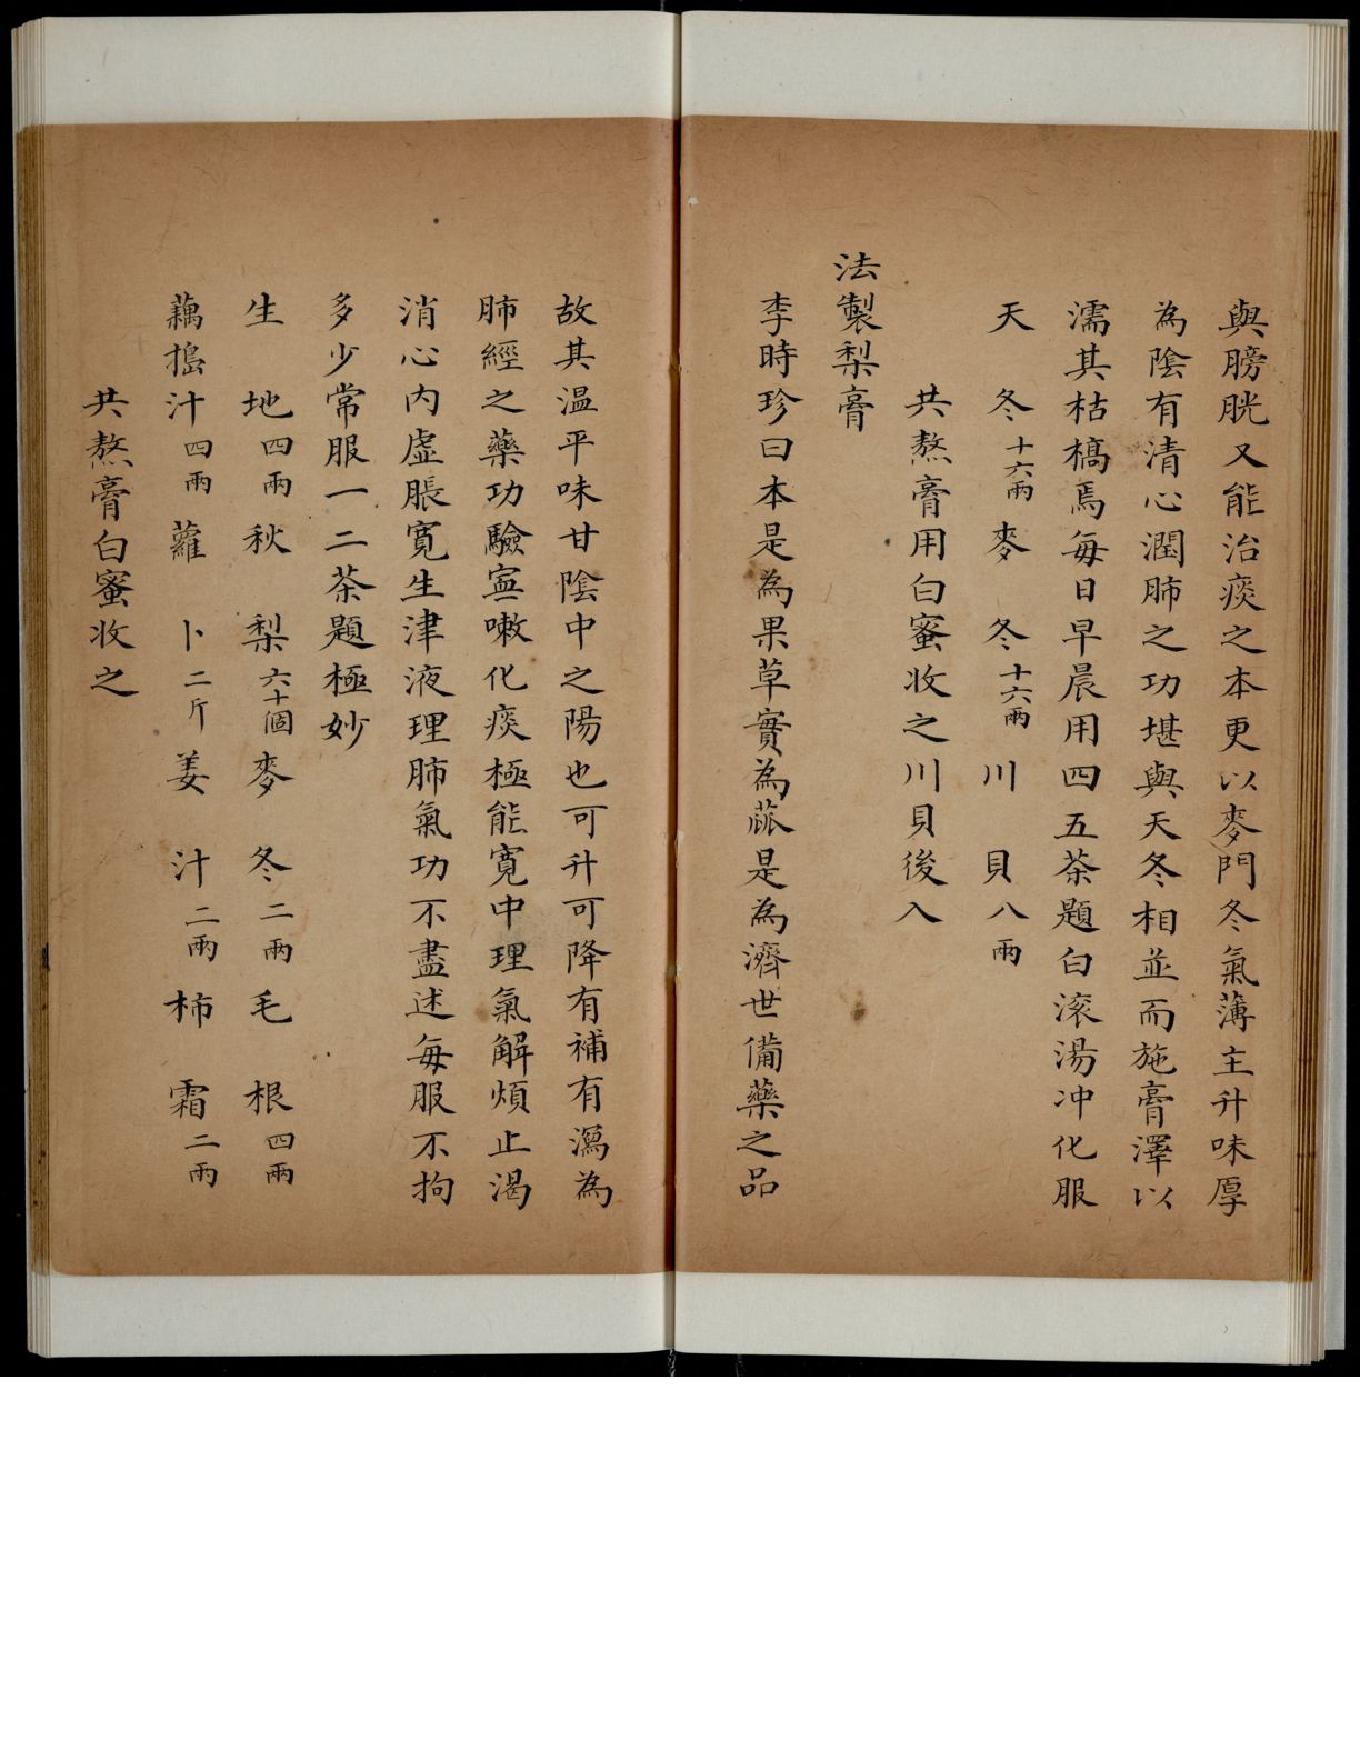 與膀胱又能治痰之本更以麥門冬氣薄主升味厚
為陰有清心潤肺之功堪與天冬相並而施膏澤以
濡其枯槁焉每日早晨用四五茶題白滾湯冲化服
天冬十六兩麥冬十六兩川貝八兩
共熬膏用白蜜收之川貝後入
法製梨膏
李時珍曰本是為果草實為蓏是為濟世備藥之品
故其温平味甘陰中之陽也可升可降有補有瀉為
肺經之藥功驗寧嗽化痰極能寬中理氣解煩止渴
消心內虛脹寬生津液理肺氣功不盡述每服不拘
多少常服一二茶題極妙
生地四兩秋梨六十個麥冬二兩毛根四兩
藕搗汁四兩蘿卜二斤姜汁二兩柿霜二兩
共熬膏白蜜收之